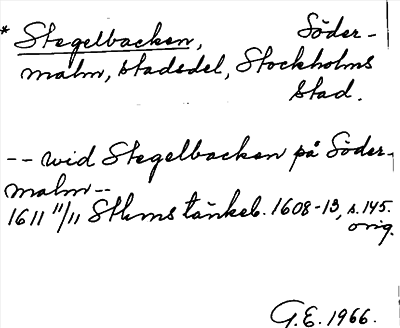 * Stegelbacken, Söder-
malm, stadsdel, Stockholms
stad.
-- wid Stegelbacken på Söder-
malm--
1611 11/11 Sthms tänkeb. 1608-13, s. 145.
orig.
G.E. 1966.